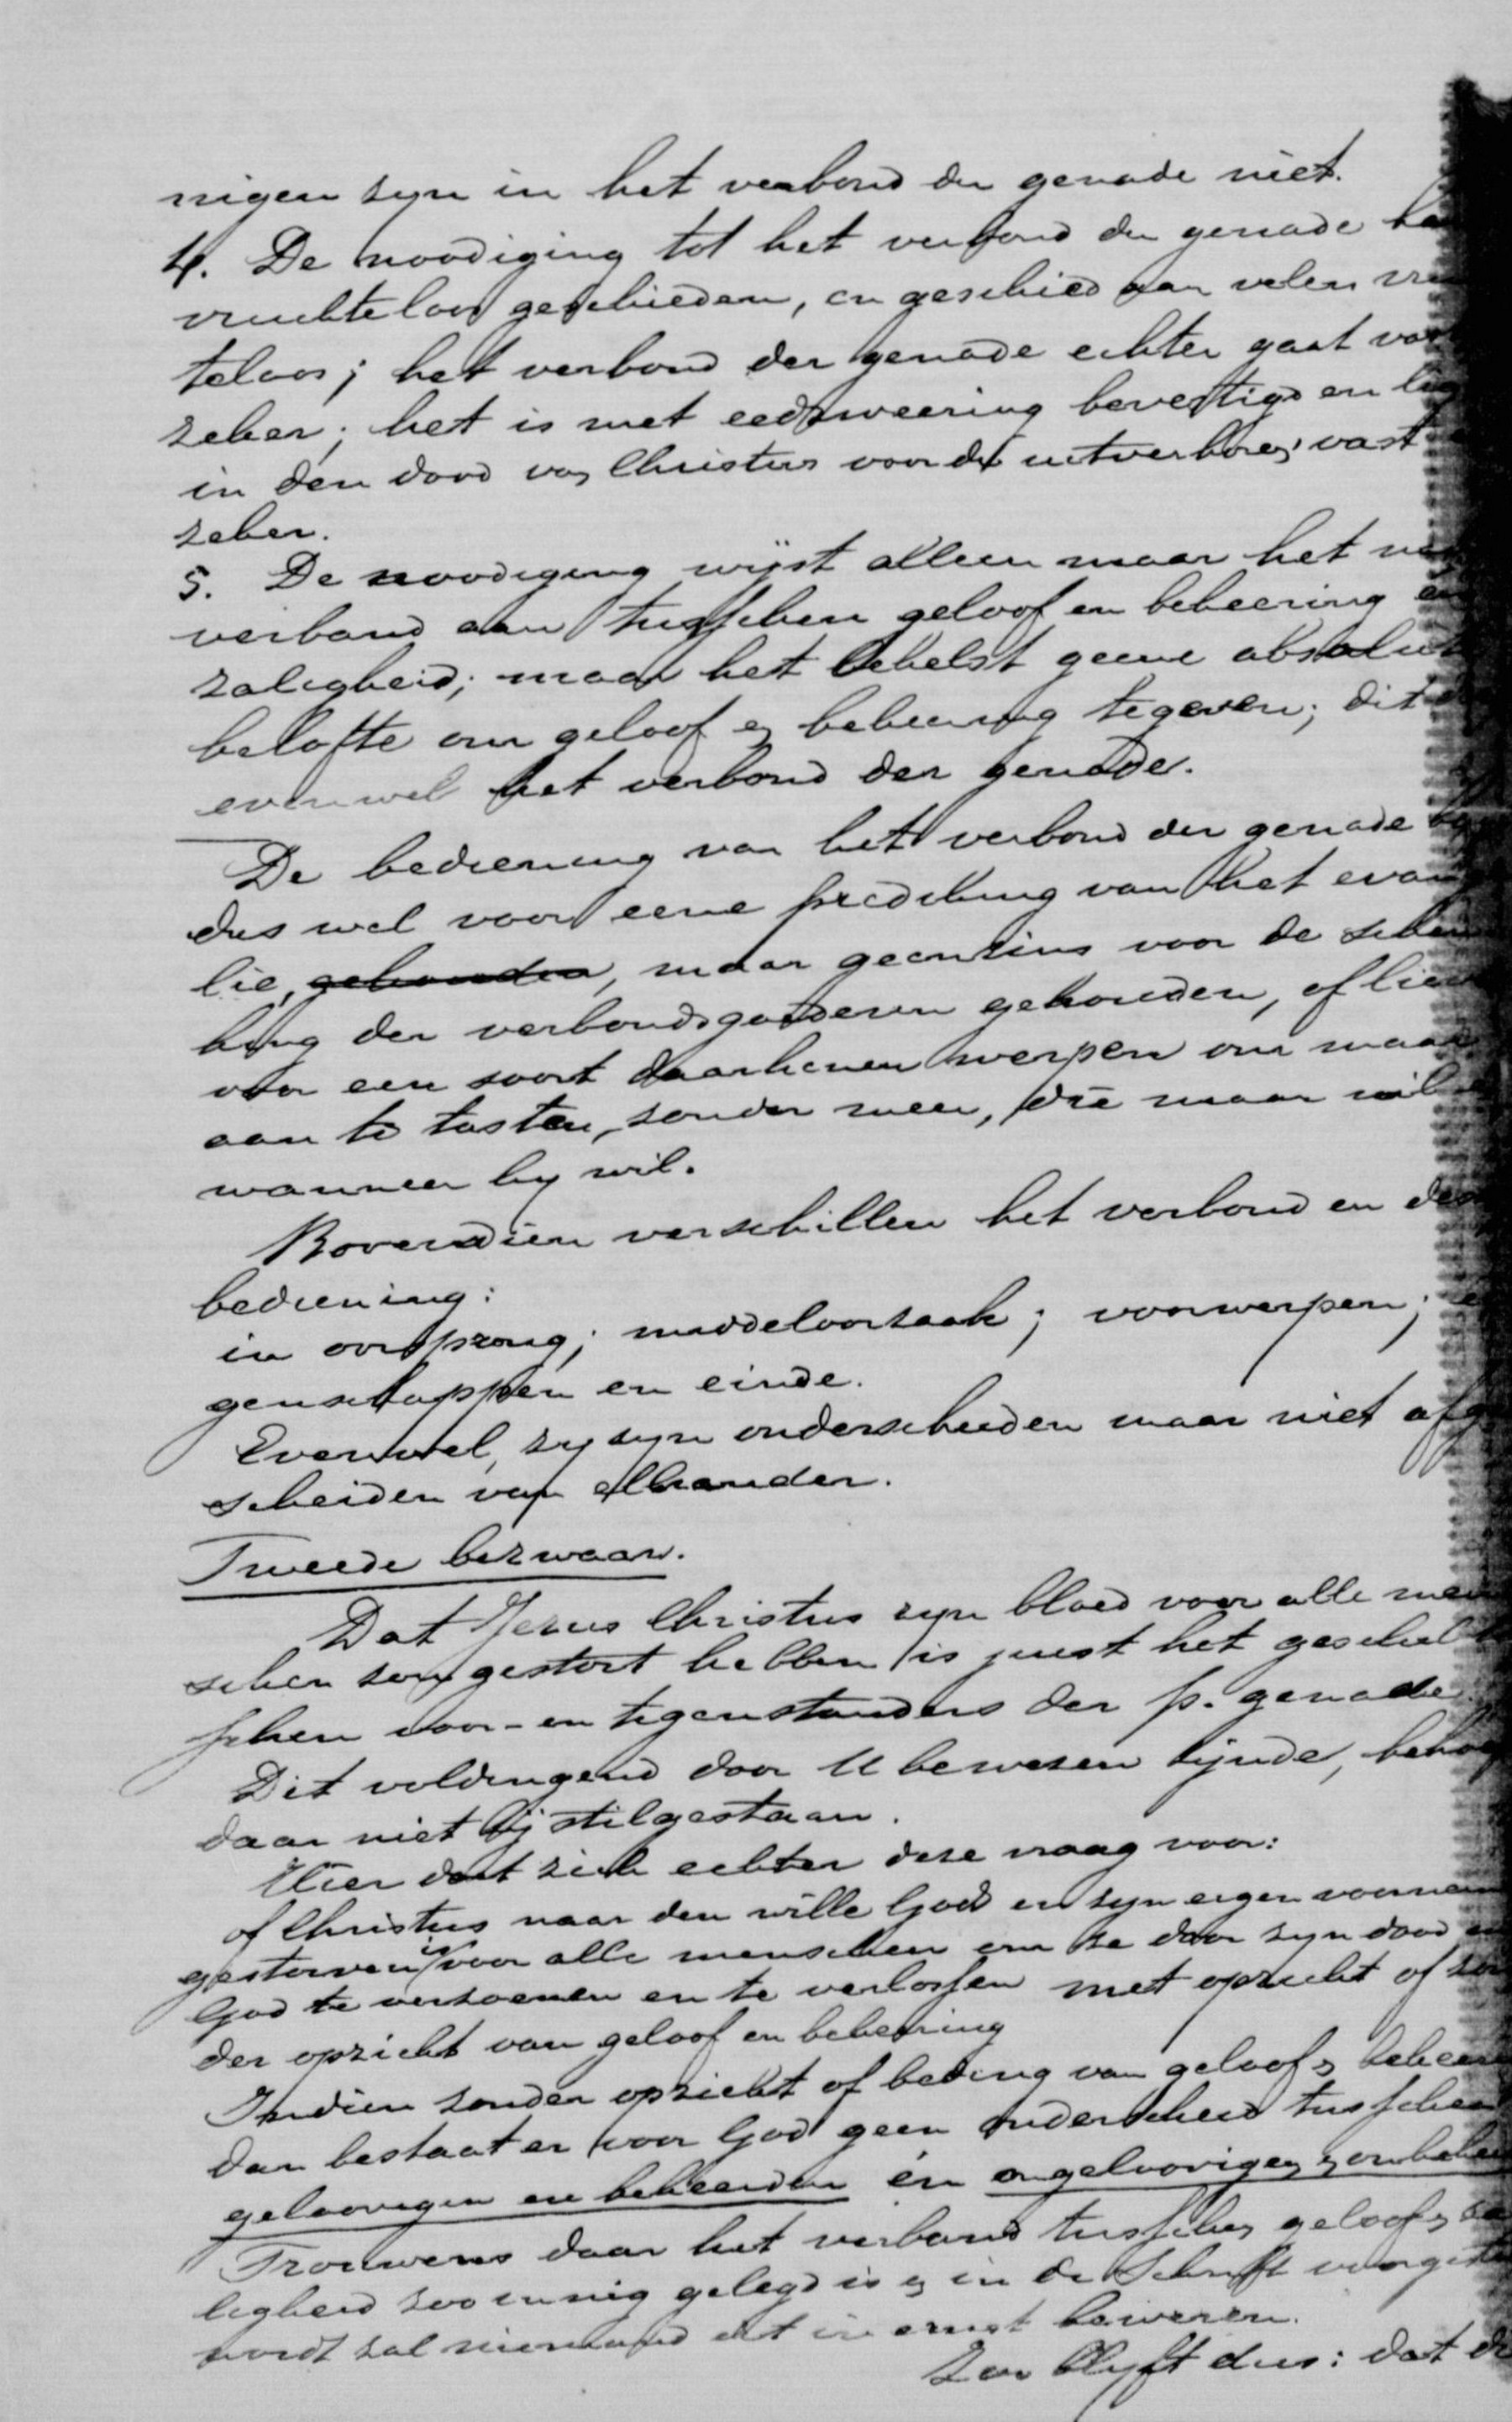 nigen zyn in het verbond der genade niet.
4. De noodiging tot het verbond der genade ka
vruchteloos geschieden, en geschied aan velen vru
teloos; het verbond der genade echter gaat vas
zeker; het is met eedzweering bevestigd en lig
in den dood van Christus voor de uitverkoren vast
zeker.
5. De noodiging wijst alleen maar het
verband aan tusschen geloof en bekeering en
zaligheid; maar het behelst geene absolut
belofte om geloof en bekeering te geven; dit
evenwel het verbond der genade.
De bediening van het verbond der genade
dus wel voor eene prediking van het evan
lie, gehouden, maar geenszins voor de schen
king der verbondsgoederen gehouden, of liev
voor een soort daarhenen werpen om maar
aan te tasten, zonder meer, die maar wil
wanneer hy wil.
Bovendien verschillen het verbond en des
bediening:
in oorsprong; middeloorzaak; voorwerpen; e
genschappen en einde.
Evenwel, zy zyn onderscheiden maar niet afg
scheiden van elkander.
Tweede bezwaar.
Dat Jezus Christus zyn bloed voor alle men
schen zou gestort hebben is juist het geschil
schen voor- en tegenstanders der p. genade.
Dit voldingend door U bewezen zijnde, behoe
daar niet bij stilgestaan.
Hier doet zich echter deze vraag voor:
of Christus naar den wille Gods en zyn eigen voornem
gestorven is voor alle menschen om ze door zyn dood
God te verzoenen en te verlossen met opzicht of zon
der opzicht van geloof en bekeering
Indien zonder opzicht of beding van geloof en bekeer
dan bestaat er voor God geen onderscheid tusschen
geloovigen en bekeerden én ongeloovigen en onbekee
Trouwens daar het verband tusschen geloof en za
ligheid zoo innig gelegd is en in de Schrift voorgest
wordt zal niemand dit in ernst beweren.
Zoo blyft dus: dat